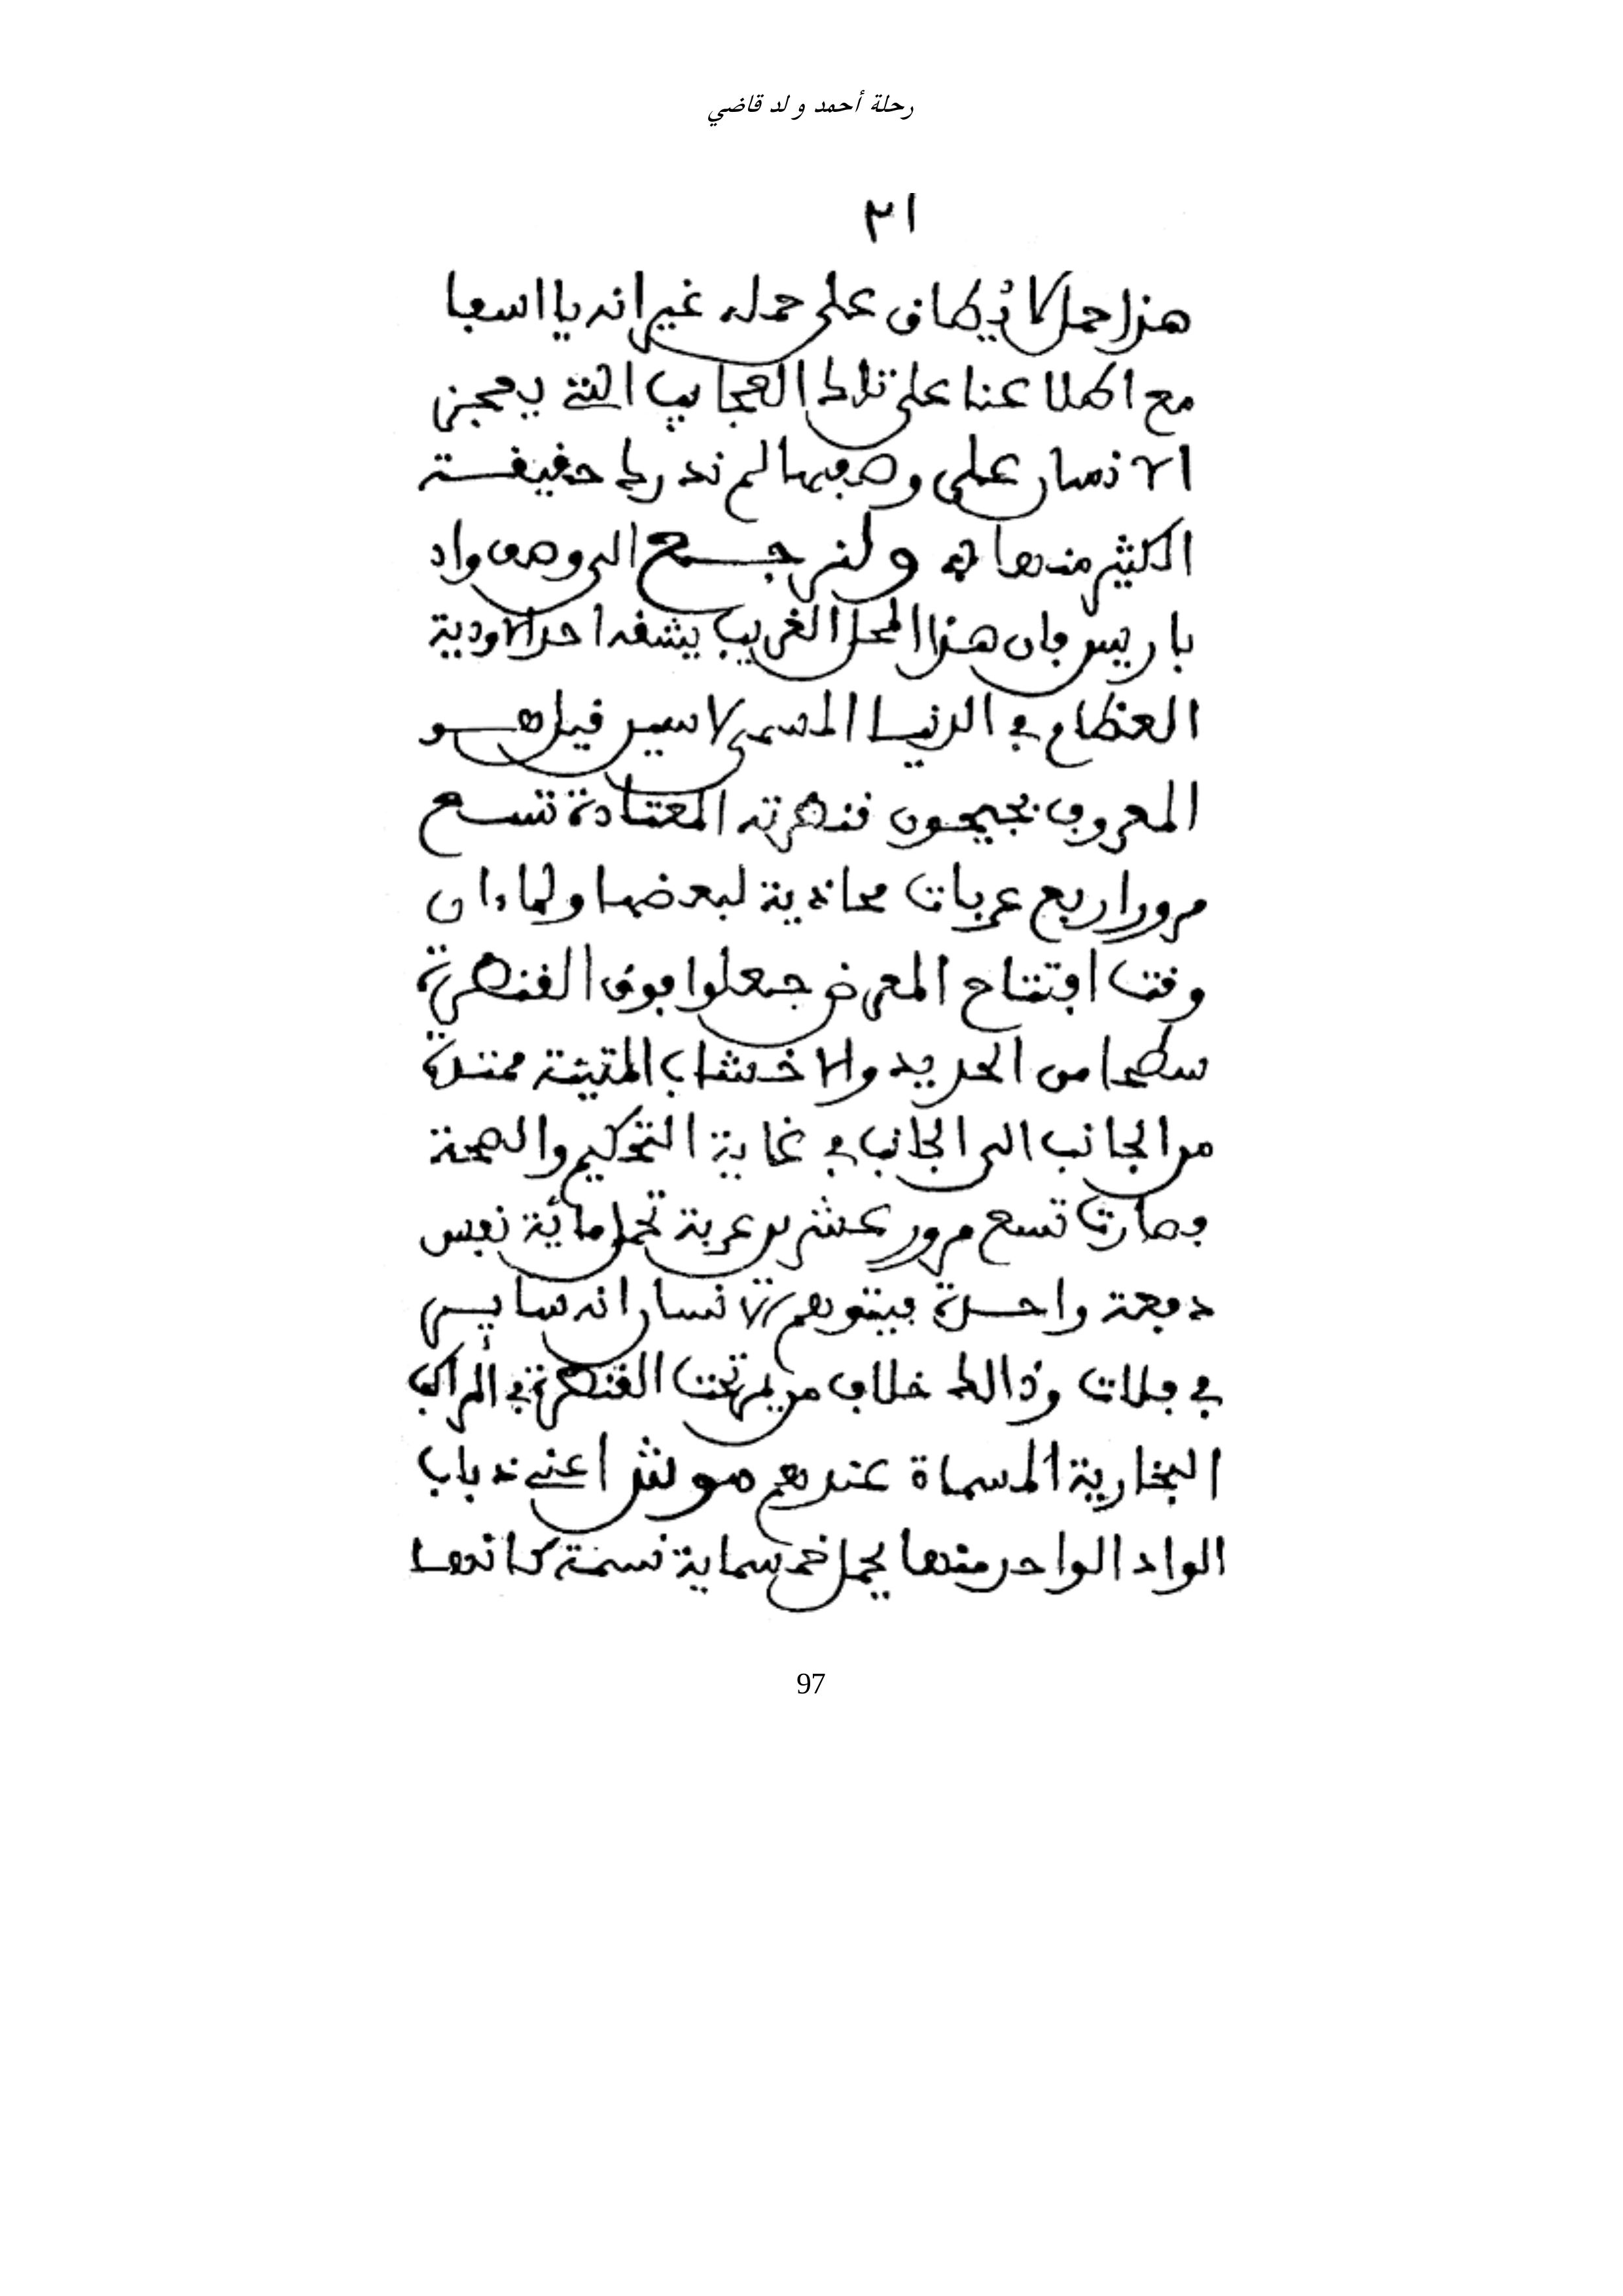 رحلة أحمد ولد قاضي
٢١
هذا حمل لا يُطاق على حمله غير انه يا اسفا
مع اطلاعنا على تلك العجايب التي يعجز
الانسان على وصفها لم ندرك حقيقة
الكثير منها ولنرجع الى وصف واد
باريس فان هذا المحل الغريب يشقه احد الاودية
العظام في الدنيا المسمى لاسير قيل هو
المعروف بجيحون قنطرته المعتادة تسع
مرور اربع عربات محاذية لبعضها ولما دان
وقت افتتاح المعرض جعلوا فوق القنطرة
سطحا من الحديد والاخشاب المتينة ممتدة
من الجانب الى الجانب في غاية التحكيم والصحة
فصارت تسع مرور عشرين عربة تحمل مائة نفس
دفعة واحدة فيتوهم الانسان انه سايس
في فلات وذالك خلاف من يمر تحت القنطرة في المراكب
البخارية المسماة عندهم موش اعني ذباب
الواد الواحد منها يحمل خمسماية نسمة كانها
97